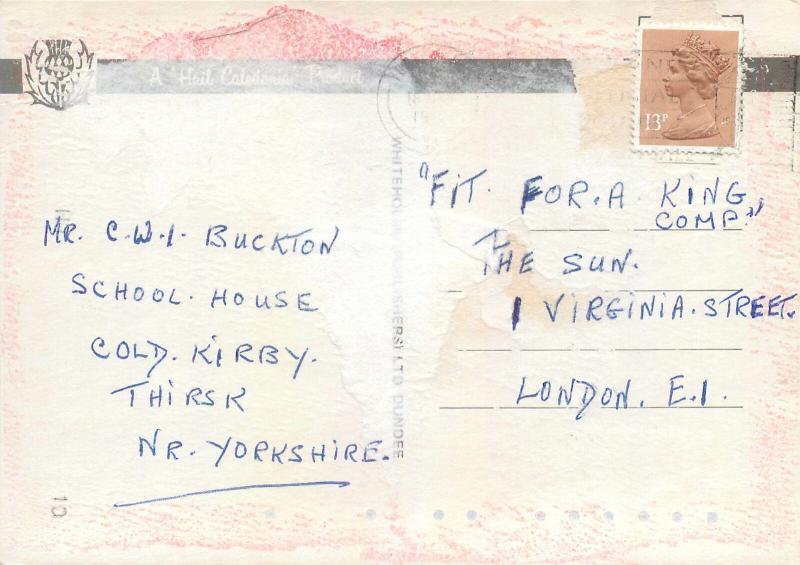 A Hail Caledonia Product
13P
MR. C.W.I. BUCKTON
SCHOOL. HOUSE
COLD. KIRBY.
THIRSK
NR. YORKSHIRE.
LTD DUNDEE
"FIT. FOR. A KING
COMP."
THE SUN.
1 VIRGINIA. STREET.
LONDON. E.1.
10